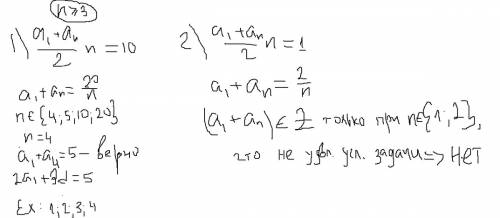 n≥3
1) (a₁+aₙ)/2 n = 10
a₁+aₙ = 20/n
n∈{4;5;10;20}
n=4
a₁+a₄=5 – верно
2a₁+3d=5
Ex: 1;2;3;4
2) (a₁+aₙ)/2 n = 1
a₁+aₙ = 2/n
(a₁+aₙ)∈Z только при n∈{1;2},
что не удвл. усл. задачи => Нет